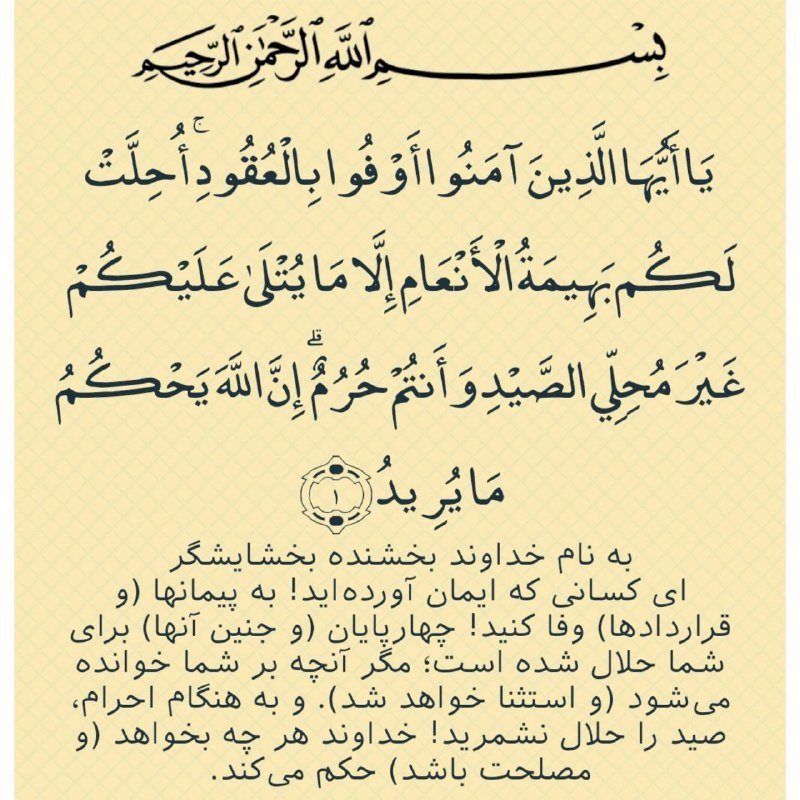 بِسْمِ اللَّهِ الرَّحْمَٰنِ الرَّحِيمِ
يَا أَيُّهَا الَّذِينَ آمَنُوا أَوْفُوا بِالْعُقُودِ ۚ أُحِلَّتْ
لَكُم بَهِيمَةُ الْأَنْعَامِ إِلَّا مَا يُتْلَىٰ عَلَيْكُمْ
غَيْرَ مُحِلِّي الصَّيْدِ وَأَنتُمْ حُرُمٌ ۗ إِنَّ اللَّهَ يَحْكُمُ
مَا يُرِيدُ ١
به نام خداوند بخشنده بخشایشگر
ای کسانی که ایمان آورده‌اید! به پیمانها (و
قراردادها) وفا کنید! چهارپایان (و جنین آنها) برای
شما حلال شده است؛ مگر آنچه بر شما خوانده
می‌شود (و استثنا خواهد شد). و به هنگام احرام،
صید را حلال نشمرید! خداوند هر چه بخواهد (و
مصلحت باشد) حکم می‌کند.